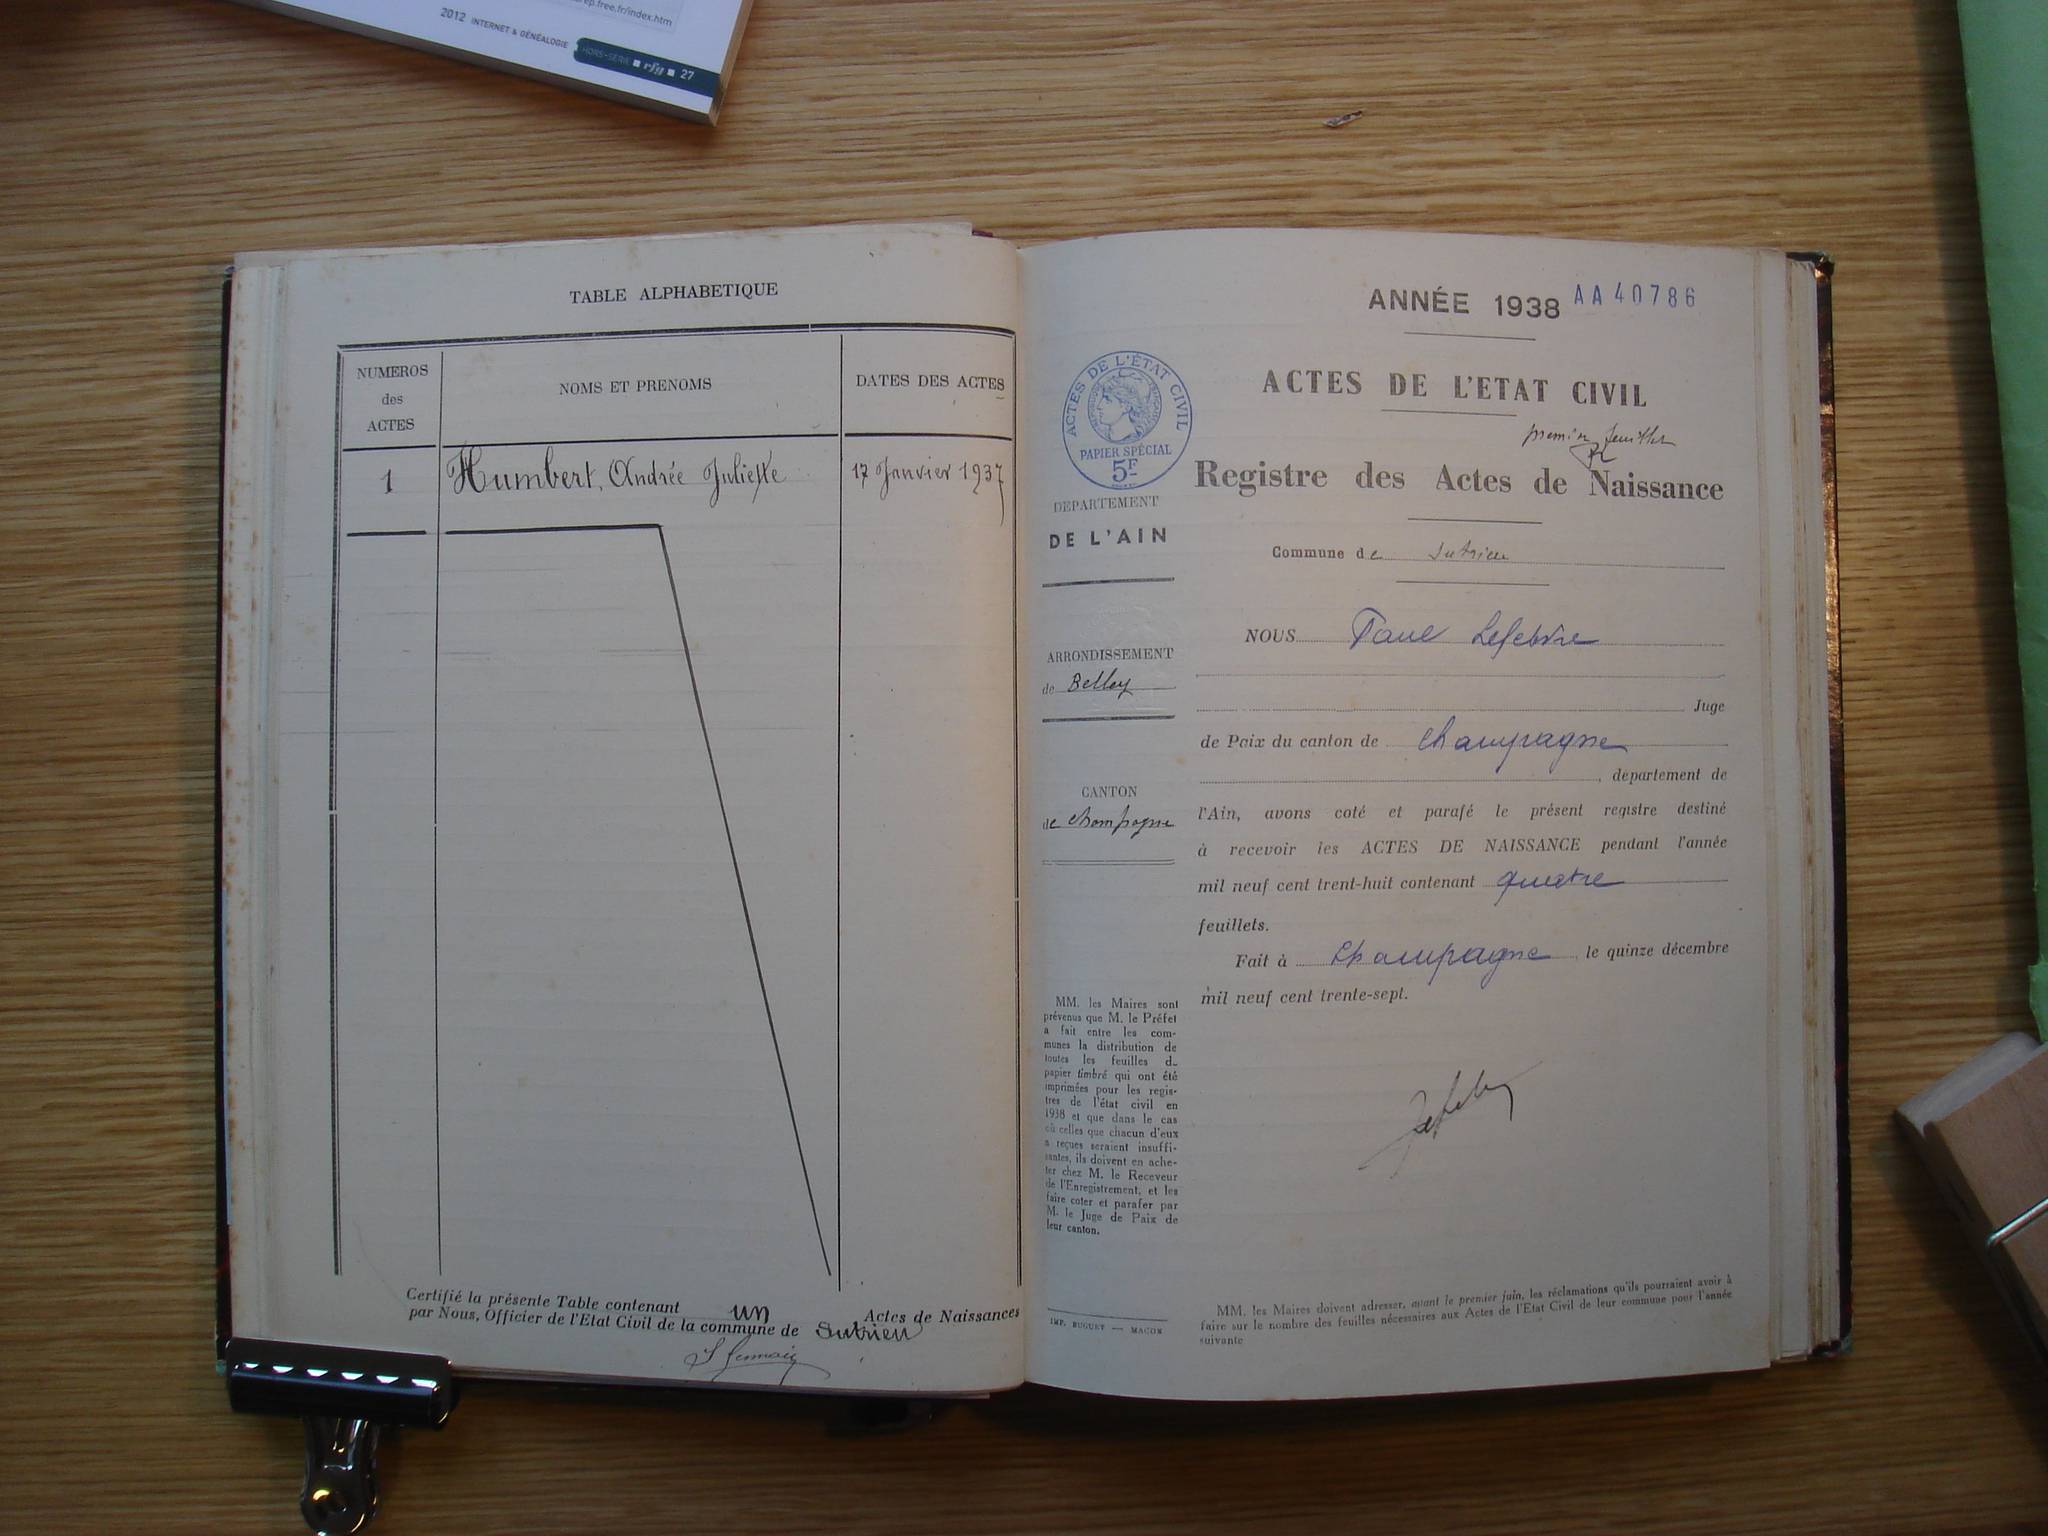 rep.free.fr/index.htm
2012 INTERNET & GÉNÉALOGIE HORS-SERIE rfg 27
TABLE ALPHABETIQUE
NUMEROS
des
ACTES
NOMS ET PRENOMS
DATES DES ACTES
1 Humbert, Andrée Juliette 17 Janvier 1937
Certifié la présente Table contenant un Actes de Naissances
par Nous, Officier de l'Etat Civil de la commune de Sutrieu
ANNÉE 1938 AA 40786
ACTES DE L'ETAT CIVIL
premier feuillet
Registre des Actes de Naissance
ACTES DE L'ÉTAT CIVIL
PAPIER SPÉCIAL
5F
DEPARTEMENT
DE L'AIN
ARRONDISSEMENT
de Belley
CANTON
de Champagne
MM. les Maires sont
prévenus que M. le Préfet
a fait entre les com-
munes la distribution de
toutes les feuilles d
papier timbré qui ont été
imprimées pour les regis-
tres de l'état civil en
1938 et que dans le cas
où celles que chacun d'eux
a reçues seraient insuffi-
santes, ils doivent en ache-
ter chez M. le Receveur
de l'Enregistrement, et les
faire coter et parafer par
M. le Juge de Paix de
leur canton.
IMP. BUGUET — MACON
Commune de Sutrieu
NOUS Paul Lefebvre
Juge
de Paix du canton de Champagne
, departement de
l'Ain, avons coté et parafé le présent registre destiné
à recevoir les ACTES DE NAISSANCE pendant l'année
mil neuf cent trent-huit contenant quatre
feuillets.
Fait à Champagne, le quinze décembre
mil neuf cent trente-sept.
MM. les Maires doivent adresser, avant le premier juin, les réclamations qu'ils pourraient avoir à
faire sur le nombre des feuilles nécessaires aux Actes de l'Etat Civil de leur commune pour l'année
suivante